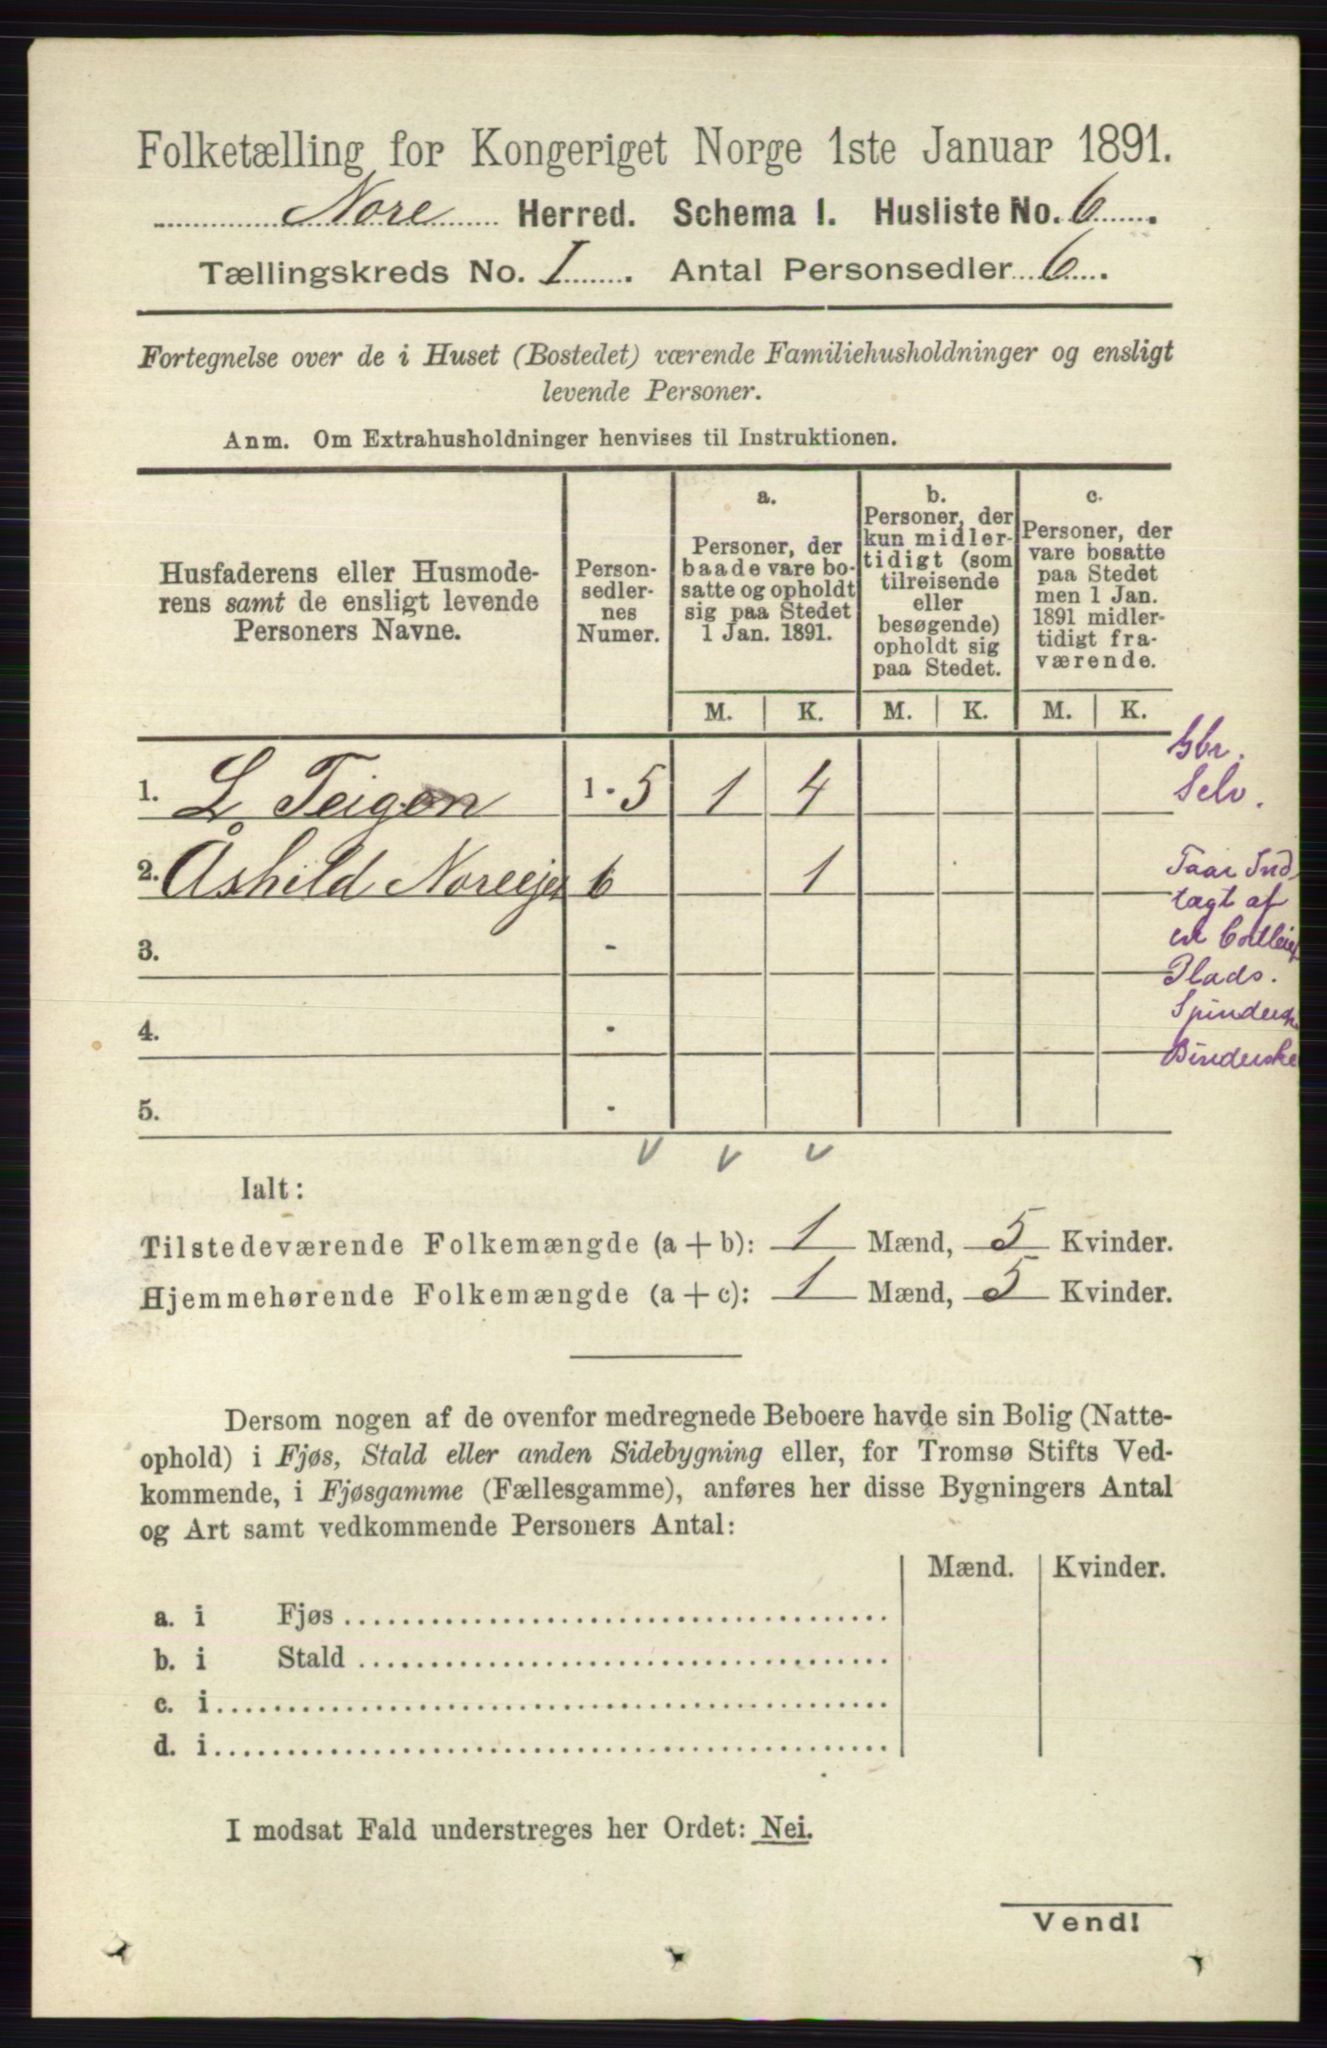 Folketælling for Kongeriget Norge 1ste Januar 1891.
Nore Herred. Schema I. Husliste No. 6.
Tællingskreds No. I. Antal Personsedler 6.
Fortegnelse over de i Huset (Bostedet) værende Familiehusholdninger og ensligt
levende Personer.
Anm. Om Extrahusholdninger henvises til Instruktionen.
Husfaderens eller Husmode-
rens samt de ensligt levende
Personers Navne.
Person-
sedler-
nes
Numer.
a.
Personer, der
baade vare bo-
satte og opholdt
sig paa Stedet
1 Jan. 1891.
b.
Personer, der
kun midler-
tidigt (som
tilreisende
eller
besøgende)
opholdt sig
paa Stedet.
c.
Personer, der
vare bosatte
paa Stedet
men 1 Jan.
1891 midler-
tidigt fra-
værende.
M. K. M. K. M. K.
1. L. Teigen 1 - 5 1 4
Gbr.
Selv.
2. Åshild 6 1
Taar Ind
tægt af
Plads.
Spindersk
Binderske
3. -
4. -
5. -
Ialt:
Tilstedeværende Folkemængde (a + b): 1 Mænd, 5 Kvinder.
Hjemmehørende Folkemængde (a + c): 1 Mænd, 5 Kvinder.
Dersom nogen af de ovenfor medregnede Beboere havde sin Bolig (Natte-
ophold) i Fjøs, Stald eller anden Sidebygning eller, for Tromsø Stifts Ved-
kommende, i Fjøsgamme (Fællesgamme), anføres her disse Bygningers Antal
og Art samt vedkommende Personers Antal:
Mænd. Kvinder.
a. i Fjøs
b. i Stald
c. i
d. i
I modsat Fald understreges her Ordet: Nei.
Vend!